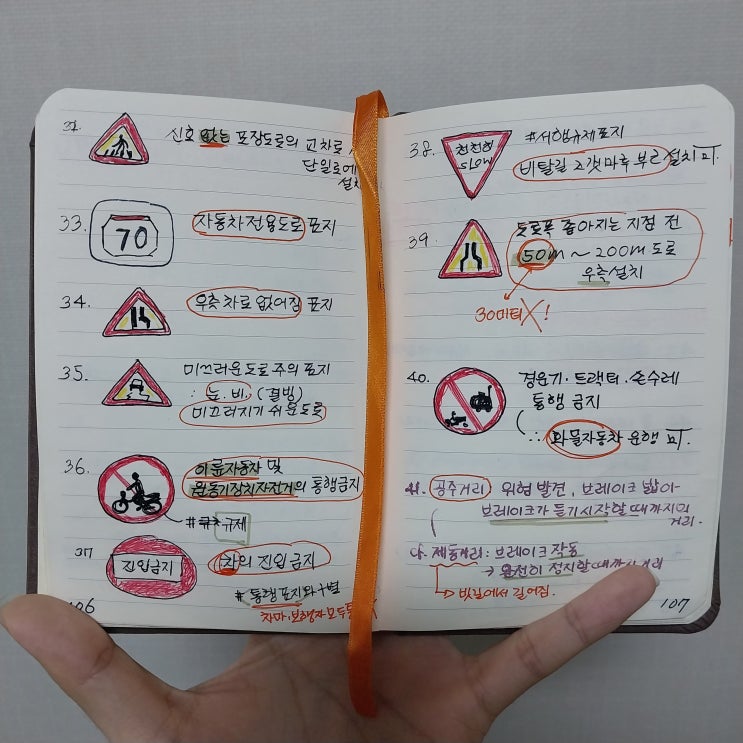 신호 없는 포장도로의 교차로
단일로에
설치
33. 70 자동차전용도로 표지
34. 우측 차로 없어짐 표지
35. 미끄러운 도로 주의 표지
: 눈.비.(결빙)
미끄러지기 쉬운 도로
36. 이륜자동차 및
원동기장치자전거의 통행금지
규제
37 진입금지 차의 진입 금지
# 통행 표지와 구별
차마·보행자 모두
106
38. 천천히
SLOW
#서행규제표지
비탈길 고갯마루 부근 설치 可.
39. 도로폭 좁아지는 지점 전
50m ~ 200m 도로
우측설치
30미터 X!
40. 경운기·트랙터·손수레
통행 금지
∴ 화물자동차 운행 可.
공주거리 위험 발견, 브레이크 밟아
브레이크가 듣기 시작할 때까지의
거리.
제동거리: 브레이크 작동
→ 완전히 정지할 때까지 거리
→ 빗길에서 길어짐.
107